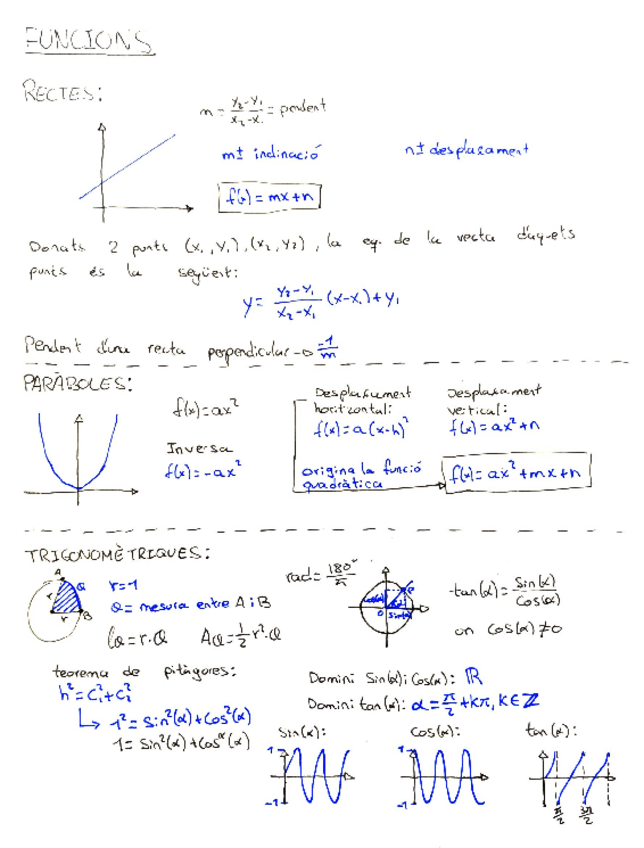 FUNCIONS
RECTES:
m = (y₂-y₁)/(x₂-x₁) = pendent
m± inclinació
n± desplaxament
f(x) = mx+n
Donats 2 punts (x₁,y₁),(x₂,y₂), la eq. de la recta d'aquets
punts és la següent:
y = (y₂-y₁)/(x₂-x₁) (x-x₁)+y₁
Pendent d'una recta perpendicular → -1/m
PARÀBOLES:
f(x)=ax²
Inversa
f(x)=-ax²
Desplaxament
horitzontal:
f(x)=a(x-h)²
Desplaxament
vertical:
f(x)=ax²+n
origina la funció
quadràtica
f(x)=ax²+mx+n
TRIGONOMÈTRIQUES:
A
r
r
B
r=1
= mesura entre A i B
rad = 180°/π
tan(α) = Sin(α)/Cos(α)
on Cos(α)≠0
teorema de pitàgores:
h²=C₁²+C₂²
↳ 1²=Sin²(α)+Cos²(α)
1=Sin²(α)+Cos²(α)
Domini Sin(α) i Cos(α): ℝ
Domini tan(α): α = π/2 + kπ, k∈ℤ
Sin(α):
1
-1
Cos(α):
1
-1
tan(α):
π/2
3π/2